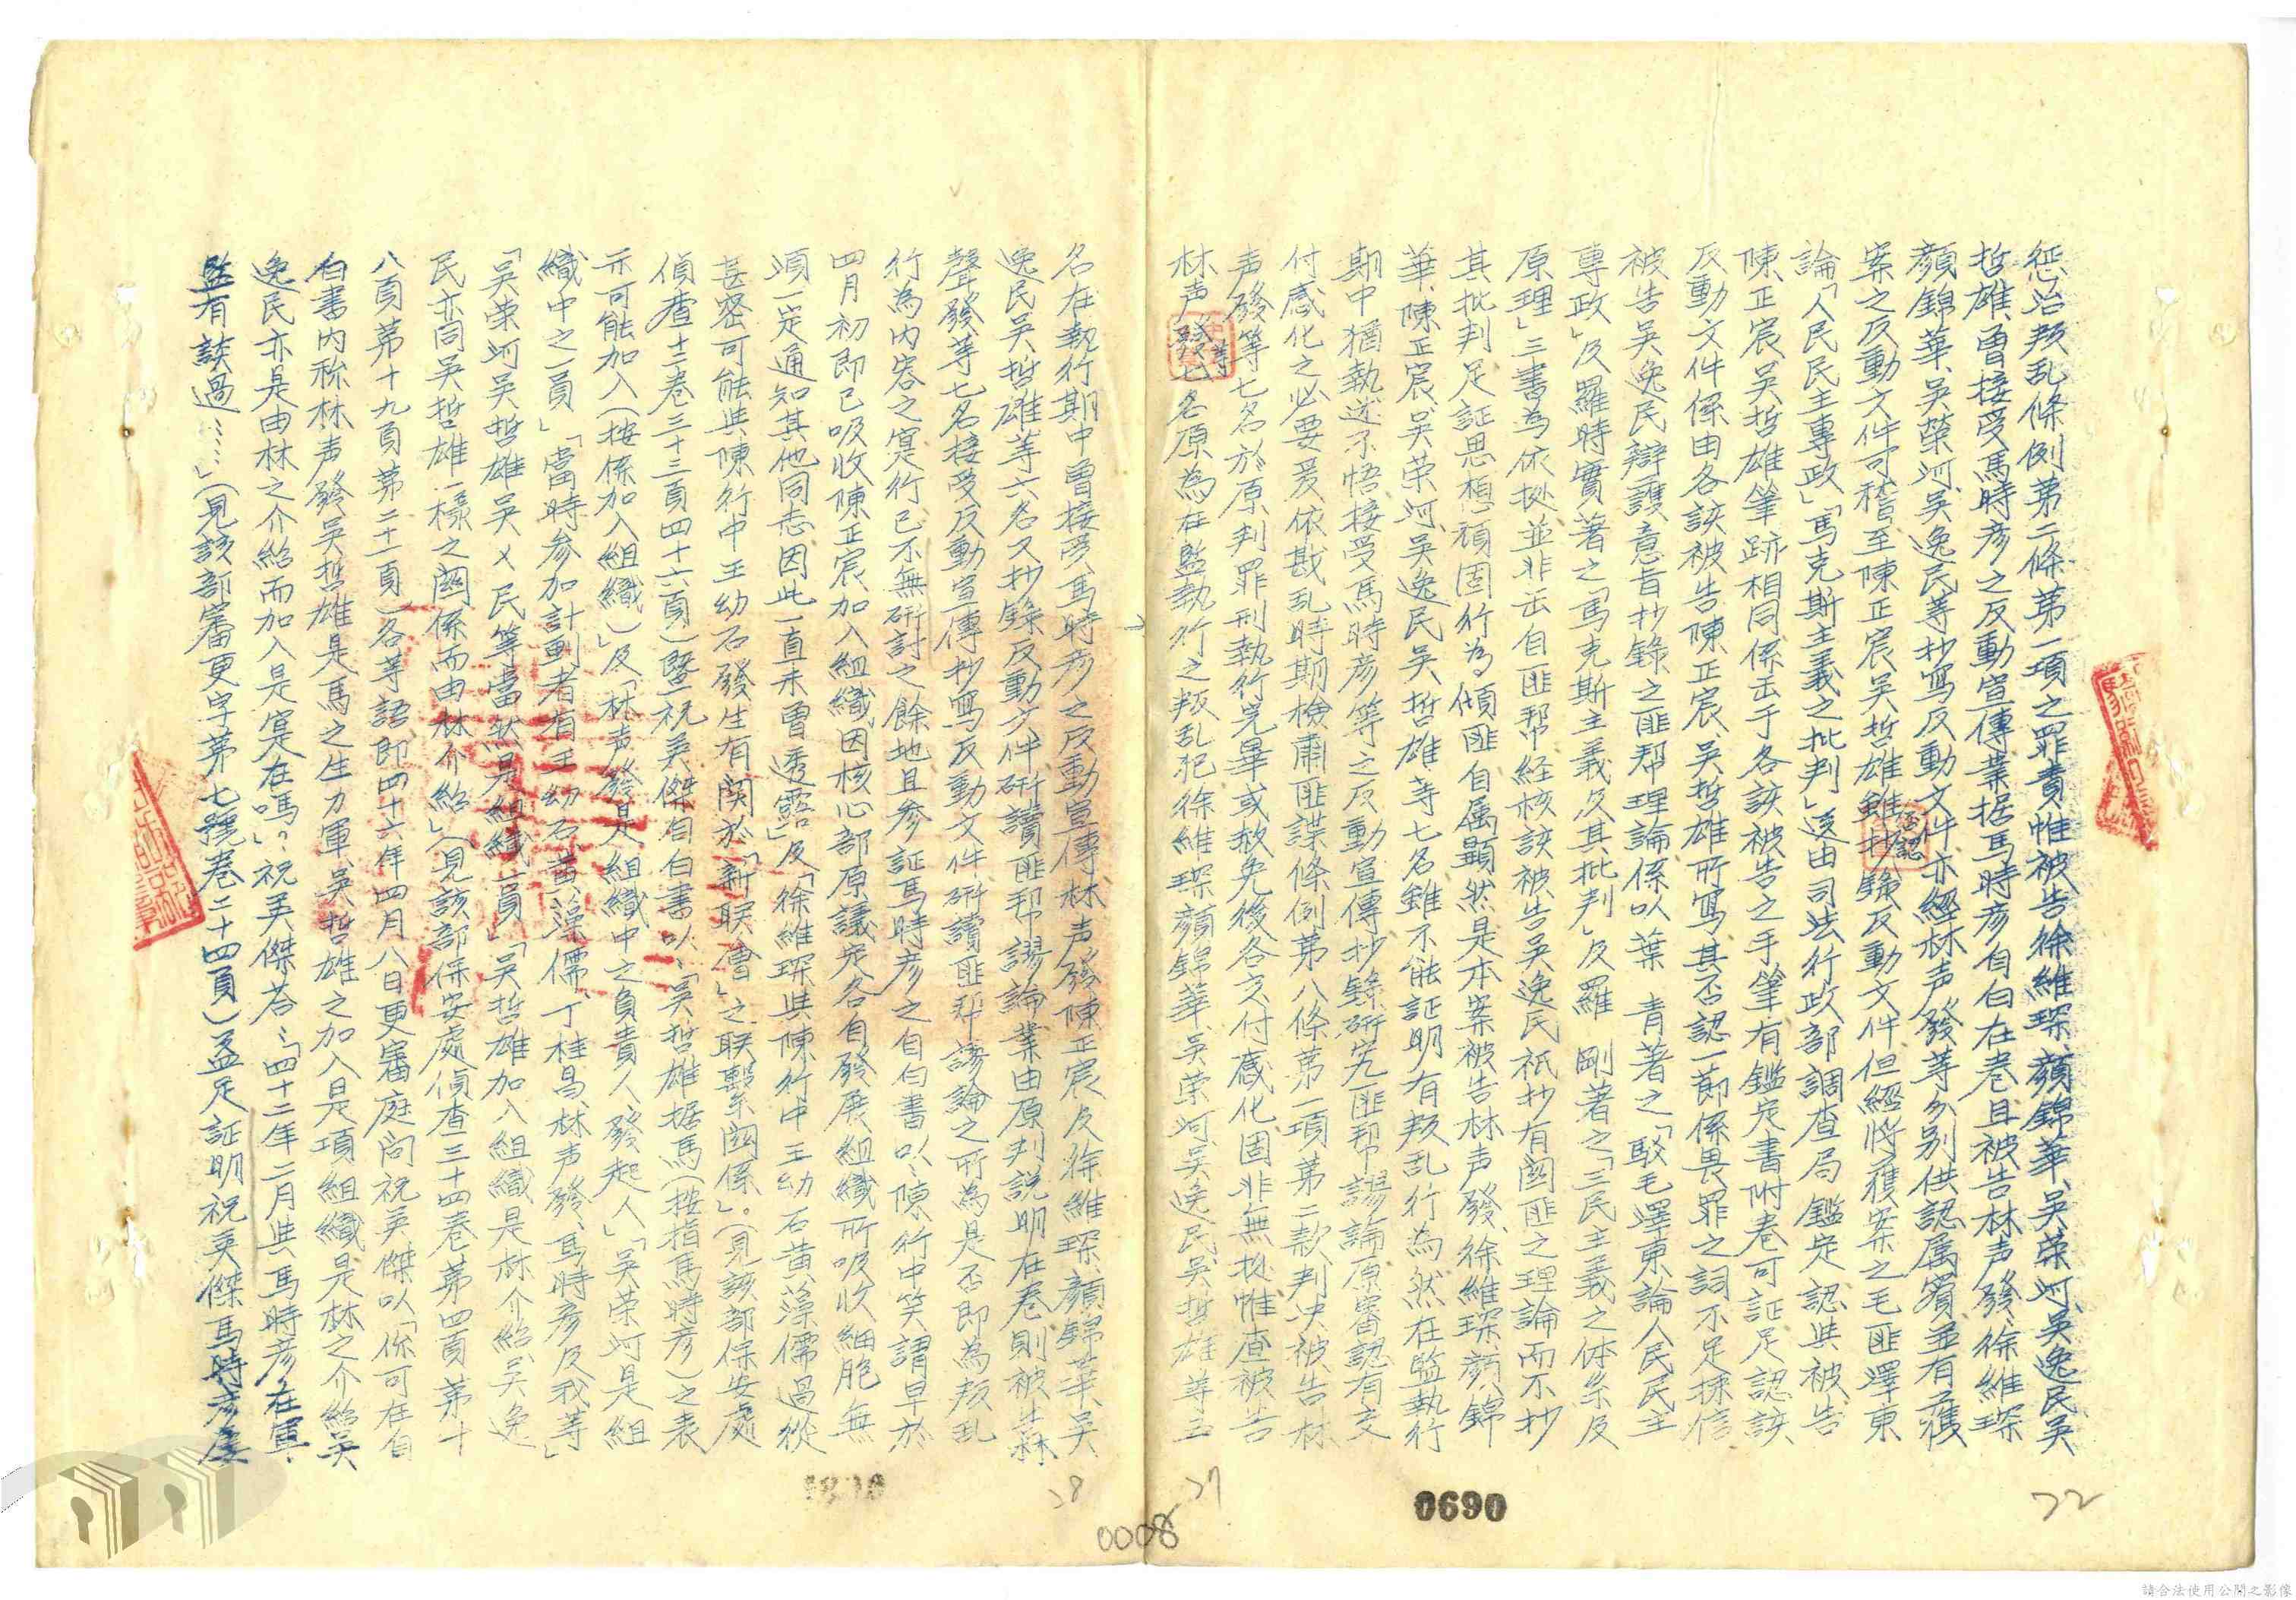 惩治叛乱條例第二條第一項之罪責惟被告徐維琛、顏錦華、吳荣河、吳逸民、吳
哲雄、曾接受馬時彥之反動宣傳業据馬時彥自白在卷且被告林声發、徐維琛
顏錦華、吳榮河、吳逸民等抄寫反動文件亦經林声發等分別供認属實並有獲
案之反動文件可稽至陳正宸吳哲雄雖否認抄錄反動文件但經將獲案之毛匪澤東
論「人民民主專政」「馬克斯主義之批判」送由司法行政部調查局鑑定認與被告
陳正宸、吳哲雄筆跡相同係出于各該被告之手筆有鑑定書附卷可証足認該
反動文件係由各該被告陳正宸、吳哲雄所寫、其否認一節係畏罪之詞不足採信
被告吳逸民辯護意旨抄錄之匪帮理論係以葉 青著之「駁毛澤東論人民民主
專政」及羅時實著之「馬克斯主義及其批判」及羅 剛著之「三民主義之体系及
原理」三書為依挺並非出自匪帮経核該被告吳逸民祇抄有関匪之理論而不抄
其批判足証思想頑固行為傾匪自属顯然是本案被告林声發、徐維琛、顏錦
華、陳正宸、吳荣河、吳逸民吳哲雄等七名雖不能証明有叛乱行為然在監執行
期中猶執迷不悟接受馬時彥等之反動宣傳抄錄研究匪帮謬論原審認有交
付感化之必要爰依戡乱時期檢肅匪諜條例第八條第一項第二款判决被告林
声發等七名於原判罪刑執行完畢或赦免後各交付感化固非無挺惟查被告
林声發等七名原為在監執行之叛乱犯徐維琛顏錦華、吳荣河、吳逸民吳哲雄等五
名在執行期中曾接受馬時彥之反動宣傳林声發陳正宸及徐維琛顏錦華、吳
逸民吳哲雄等六名又抄錄反動文件研讀匪帮謬論業由原判説明在卷則被告林
聲發等七名接受反動宣傳抄寫反動文件研讀匪帮謬論之所為是否即為叛乱
行為內容之寔行已不無研討之餘地且參証馬時彥之自白書以「陳行中笑謂早於
四月初即已吸收陳正宸加入組織因核心部原議定各自發展組織所吸收細胞無
須一定通知其他同志因此一直未曾透露」及「徐維琛與陳行中王幼石黄藻儒過從
甚密可能與陳行中王幼石發生有関於「新联會」之联繫関係」。(見該部保安處
偵查十二卷三十三頁四十六頁)暨祝英傑自白書以「吳哲雄据馬(按指馬時彥)之表
示可能加入(按係加入組織)」及「林声發是組織中之負責人、發起人」「吳荣河是組
織中之一員」「當時参加計劃者有王幼石、黄藻儒、丁桂昌、林声發、馬時彥及我等」
「吳荣河吳哲雄吳×民等當然是組織一員」「吳哲雄加入組織是林介紹、吳逸
民亦同吳哲雄一樣之関係而由林介紹」(見該部保安處偵查三十四卷第四頁第十
八頁第十九頁第二十一頁)各等語即四十六年四月八日更審庭问祝英傑以「你可在自
白書內称林声發吳哲雄是馬之生力軍、吳哲雄之加入是項組織是林之介紹吳
逸民亦是由林之介紹而加入是寔在嗎?」祝英傑荅:「四十二年二月與馬時彥在軍
監有談過……」(見該部審更字第七號卷二十四頁)益足証明祝英傑馬時彥
27
28
0690
0008
72
請合法使用公開之影像